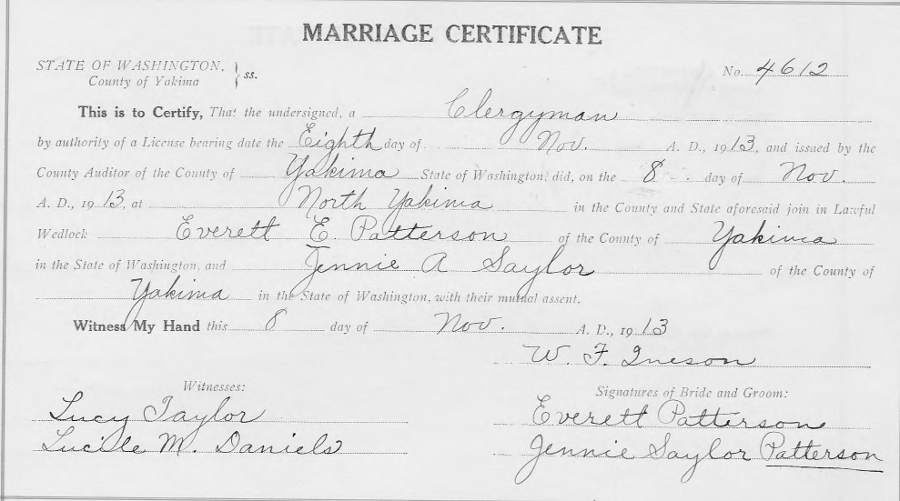 MARRIAGE CERTIFICATE
STATE OF WASHINGTON, } ss. No. 4612
County of Yakima
This is to Certify, That the undersigned, a Clergyman
by authority of a License bearing date the Eighth day of Nov. A. D., 1913, and issued by the
County Auditor of the County of Yakima State of Washington, did, on the 8 day of Nov.
A. D., 1913, at North Yakima in the County and State aforesaid join in Lawful
Wedlock Everett E. Patterson of the County of Yakima
in the State of Washington, and Jennie A Saylor of the County of
Yakima in the State of Washington, with their mutual assent.
Witness My Hand this 8 day of Nov. A. D., 1913
W. F. Ineson
Witnesses: Signatures of Bride and Groom:
Lucy Taylor Everett Patterson
Lucile M. Daniels Jennie Saylor Patterson